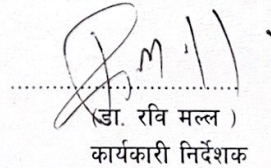 (डा. रवि मल्ल )
कार्यकारी निर्देशक